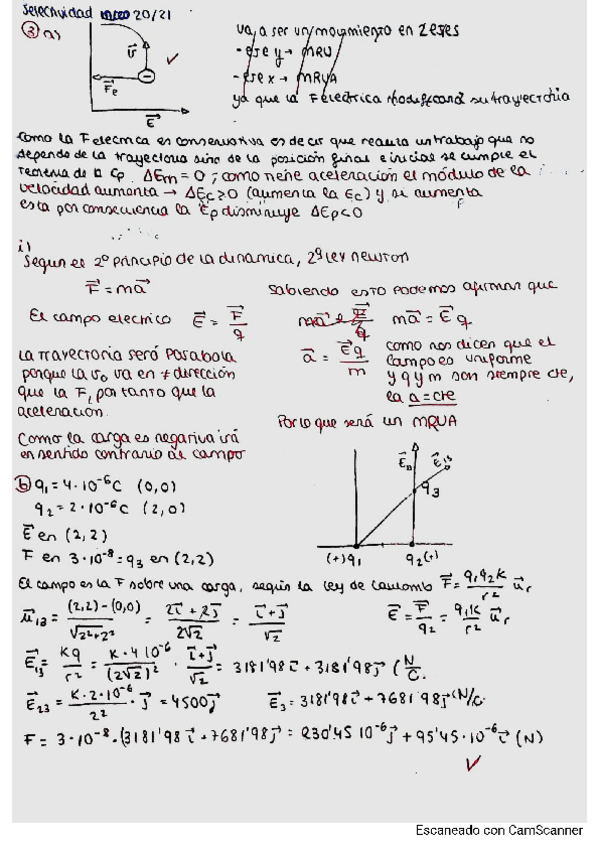 Selectividad 20/21
③ a)
va a ser un movimiento en 2 ejes
- eje y → MRU
- eje x → MRUA
ya que la F electrica modificará su trayectoria
v⃗
F⃗e
E⃗
como la F electrica es conservativa es decir que realiza un trabajo que no
depende de la trayectoria sino de la posición final e inicial se cumple el
teorema de la Cp. ΔEm = 0 ; como tiene aceleración el módulo de la
velocidad aumenta → ΔEc≥0 (aumenta la Ec) y si aumenta
esta por consecuencia la Ep disminuye ΔEp<0
i)
Segun el 2º principio de la dinamica, 2ª ley newton
F⃗ = ma⃗
El campo electrico E⃗ = F⃗/q
La trayectoria será Parabola
porque la v₀ va en ≠ dirección
que la F, por tanto que la
aceleracion.
Como la carga es negativa irá
en sentido contrario al campo
Sabiendo esto Podemos afirmar que
ma⃗ = E⃗ q
a⃗ = E⃗q/m
como nos dicen que el
campo es uniforme
y q y m son siempre cte,
la a = cte
Por lo que será un MRUA
ⓑ q₁ = 4·10⁻⁶C (0,0)
q₂ = 2·10⁻⁶C (2,0)
E⃗ en (2,2)
F en 3·10⁻⁸ = q₃ en (2,2)
E⃗₁₃
q₃
(+)q₁
q₂(+)
El campo es la F sobre una carga, según la ley de Coulomb F⃗ = q₁q₂K/r² u⃗r
u⃗₁₃ = (2,2)-(0,0)/√2²+2² = 2i⃗ + 2j⃗/2√2 = i⃗+j⃗/√2
E⃗ = F⃗/q₂ = q₁K/r² u⃗r
E⃗₁₃ = Kq/r² = K·4·10⁻⁶/(2√2)² · i⃗+j⃗/√2 = 3181'98i⃗ + 3181'98j⃗ (N/C.
E⃗₂₃ = K·2·10⁻⁶/2² · j⃗ = 4500j⃗
E⃗₃ = 3181'98i⃗ + 7681'98j⃗ (N/C.
F = 3·10⁻⁸·(3181'98i⃗ + 7681'98j⃗ = 230'45 10⁻⁶j⃗ + 95'45·10⁻⁶i⃗ (N)
Escaneado con CamScanner